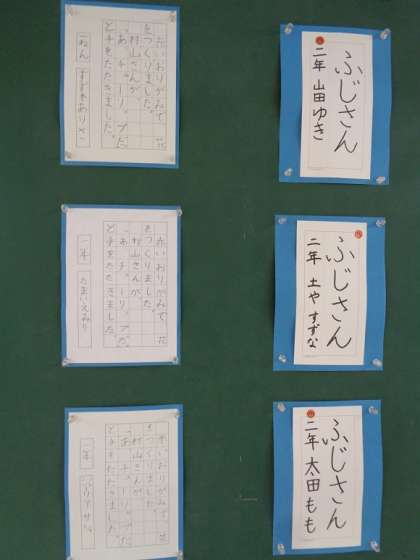 ふじさん
二年 山田ゆき
ふじさん
二年 土や すずな
ふじさん
二年 太田もも
赤いおりがみで、花
をつくりました。
村山さんが、
「あ、チューリップだ。」
と手をたたきました。
一ねん
赤いおりがみで、花
をつくりました。
村山さんが、
「あ、チューリップだ。」
と手をたたきました。
一年
赤いおりがみで、花
をつくりました。
村山さんが、
「あ、チューリップだ。」
と手をたたきました。
一年